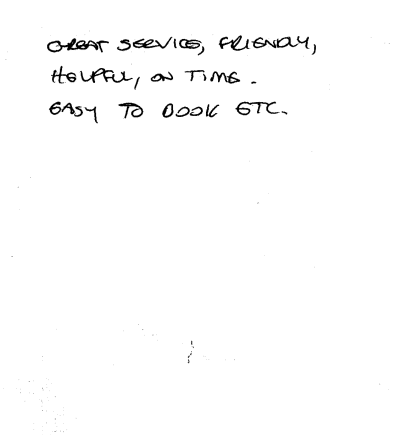 GREAT SERVICE, FRIENDLY,
HELPFUL, ON TIME.
EASY TO BOOK ETC.